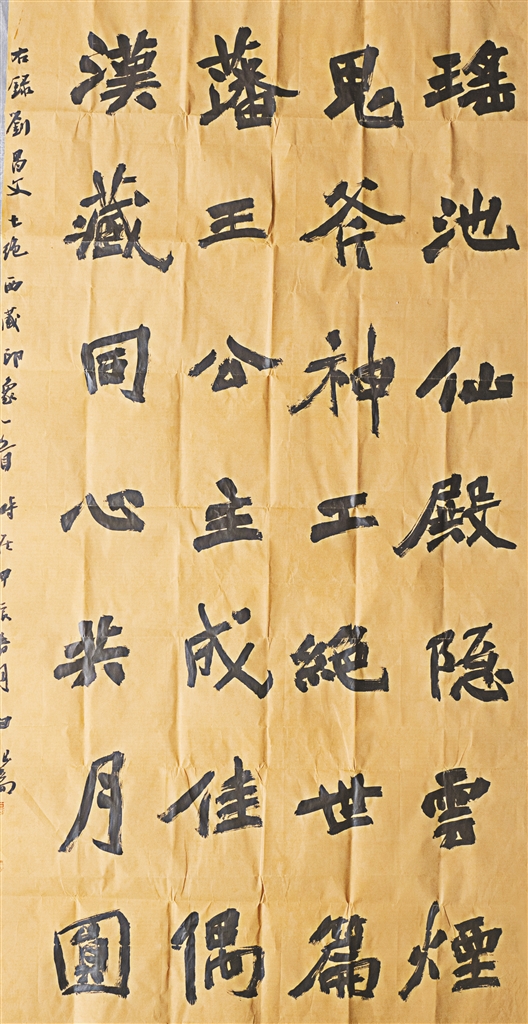 瑤池仙殿隐雲煙
鬼斧神工絕世篇
蕃王公主成佳偶
漢藏同心共月圓
右錄劉昌文七绝西藏印象一首時在甲辰